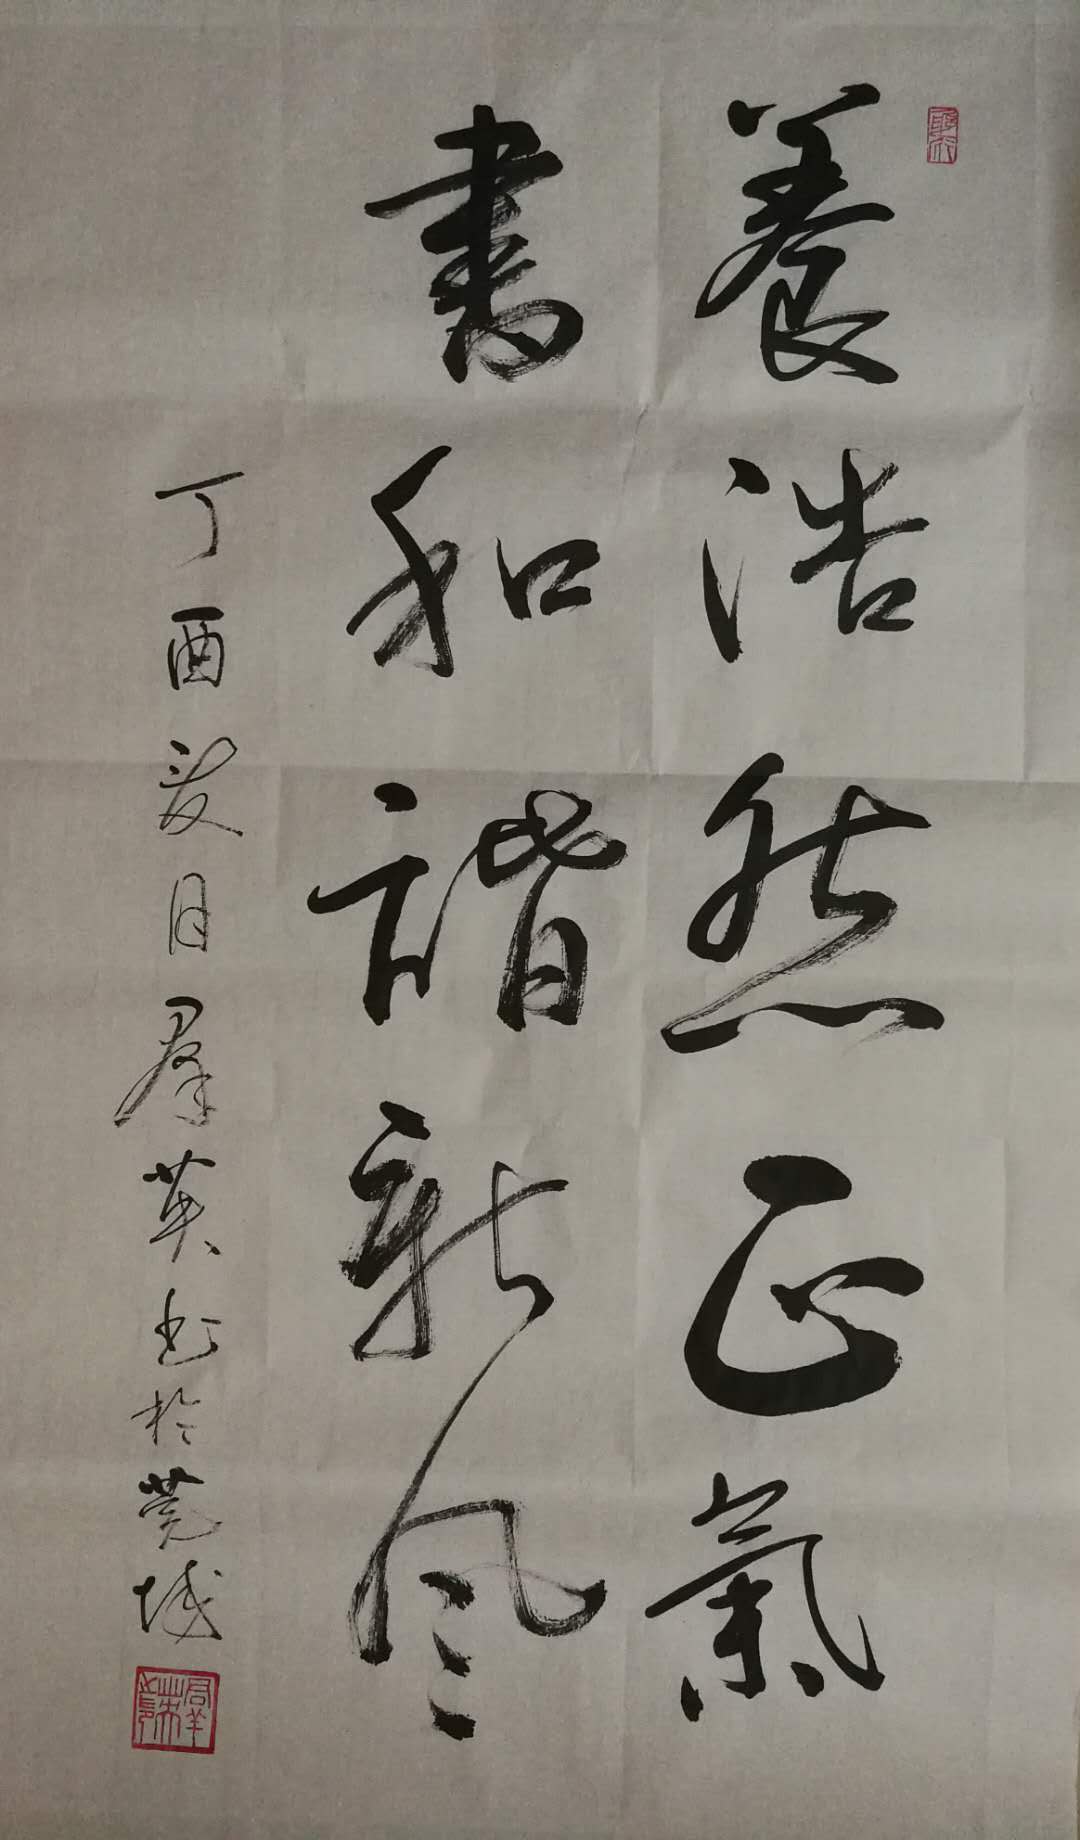 養浩然正氣
書和諧新风
丁酉夏月群英书於莞城